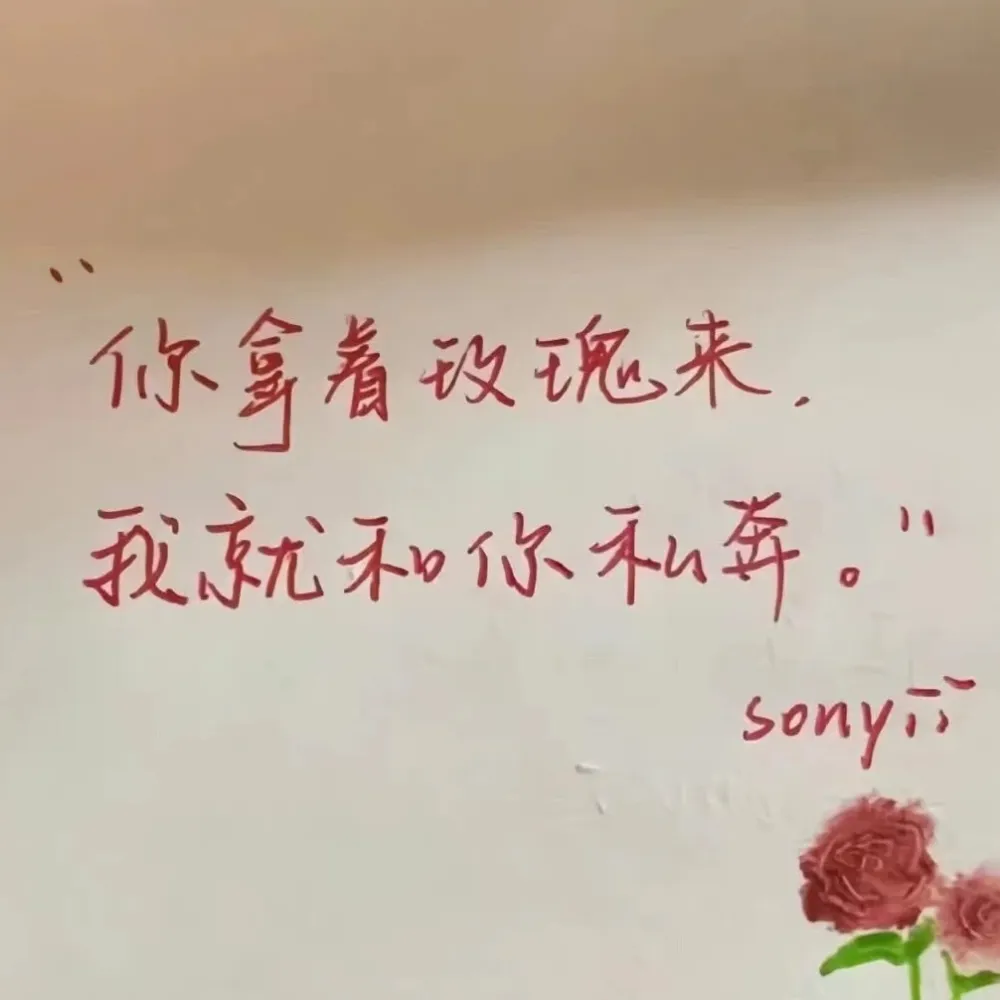 “你拿着玫瑰来.
我就和你私奔。”
sony